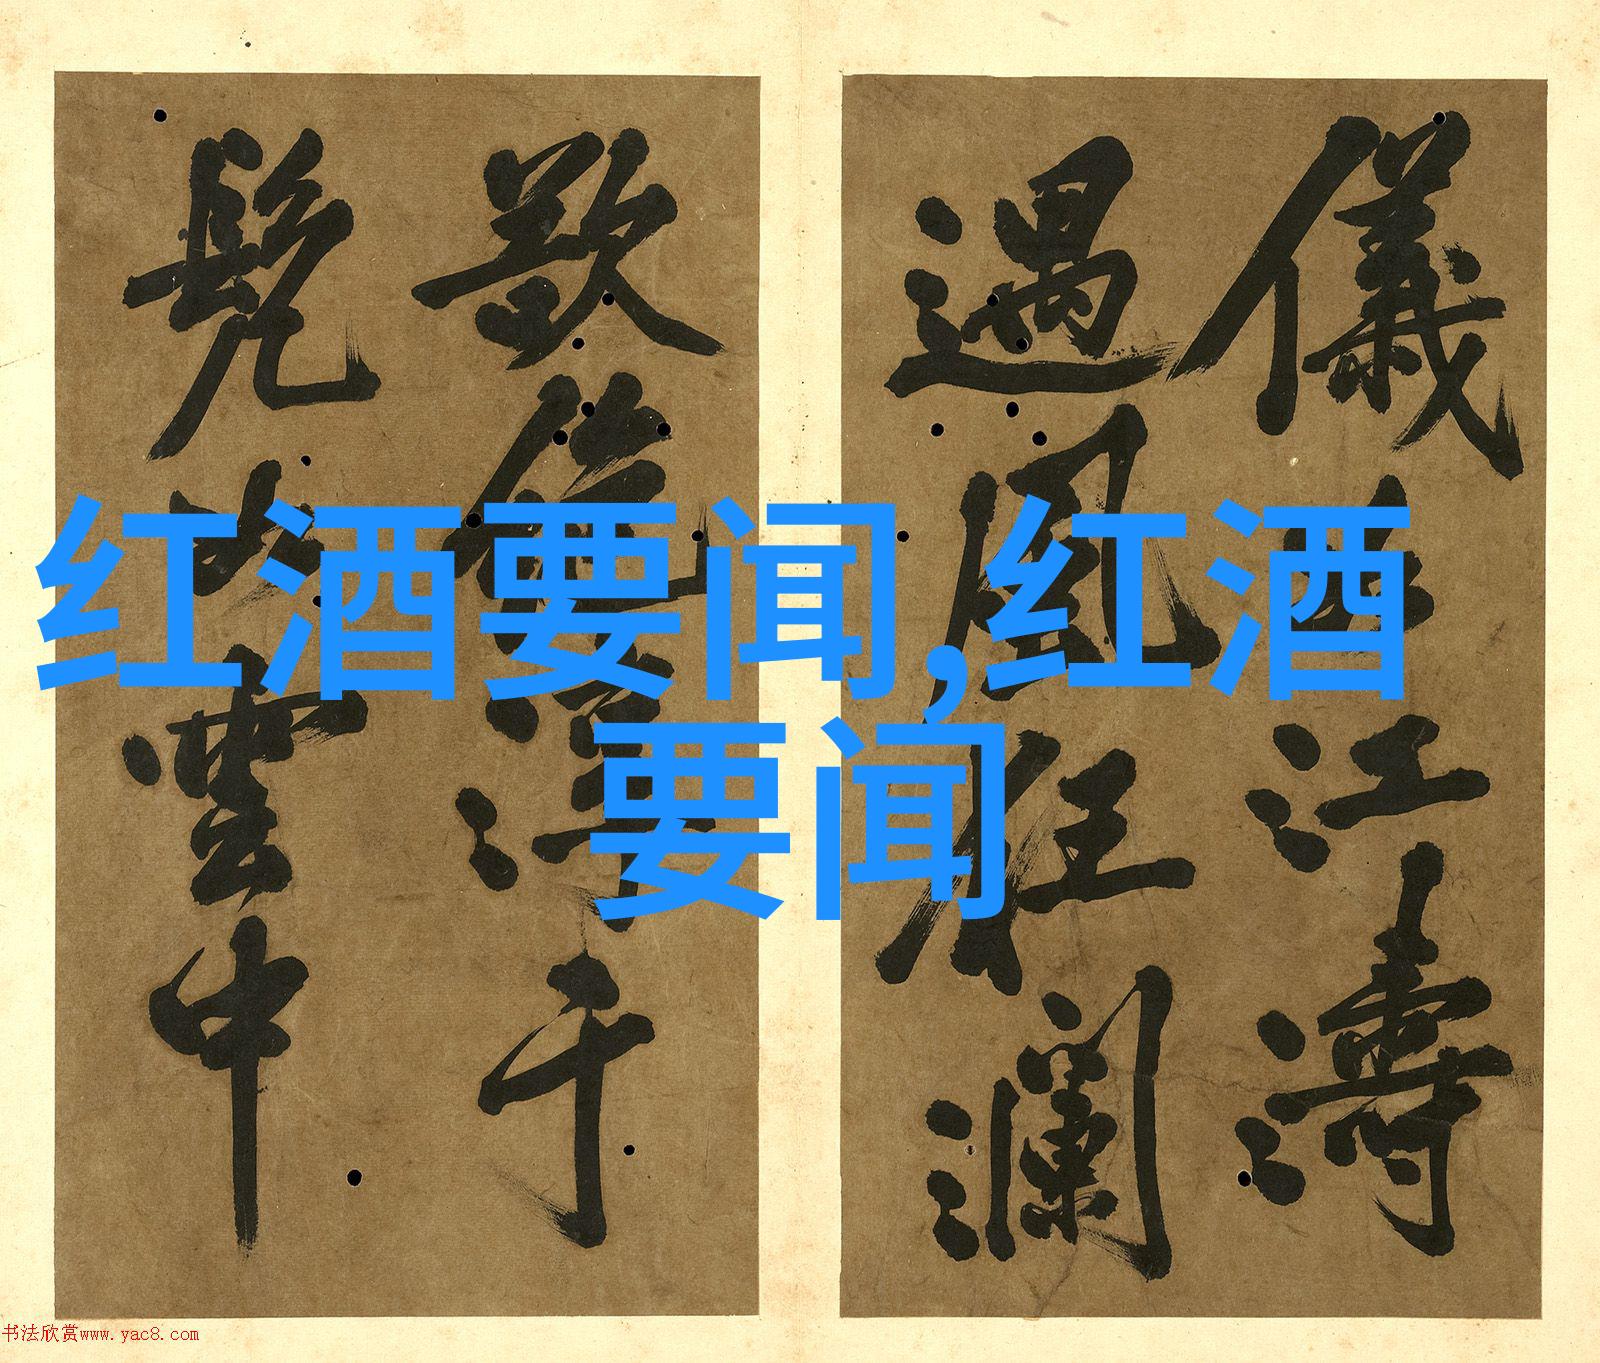 儀江濤
遇風狂瀾
于
如雲中
红酒要闻,红酒
要闻
书法欣赏www.yac8.com